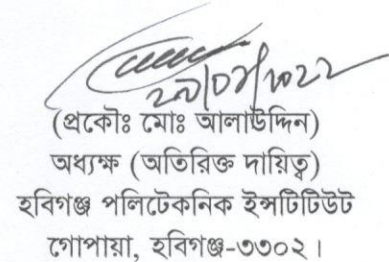 (প্রকৌঃ মোঃ আলাউদ্দিন)
অধ্যক্ষ (অতিরিক্ত দায়িত্ব)
হবিগঞ্জ পলিটেকনিক ইন্সটিটিউট
গোপায়া, হবিগঞ্জ-৩৩০২।